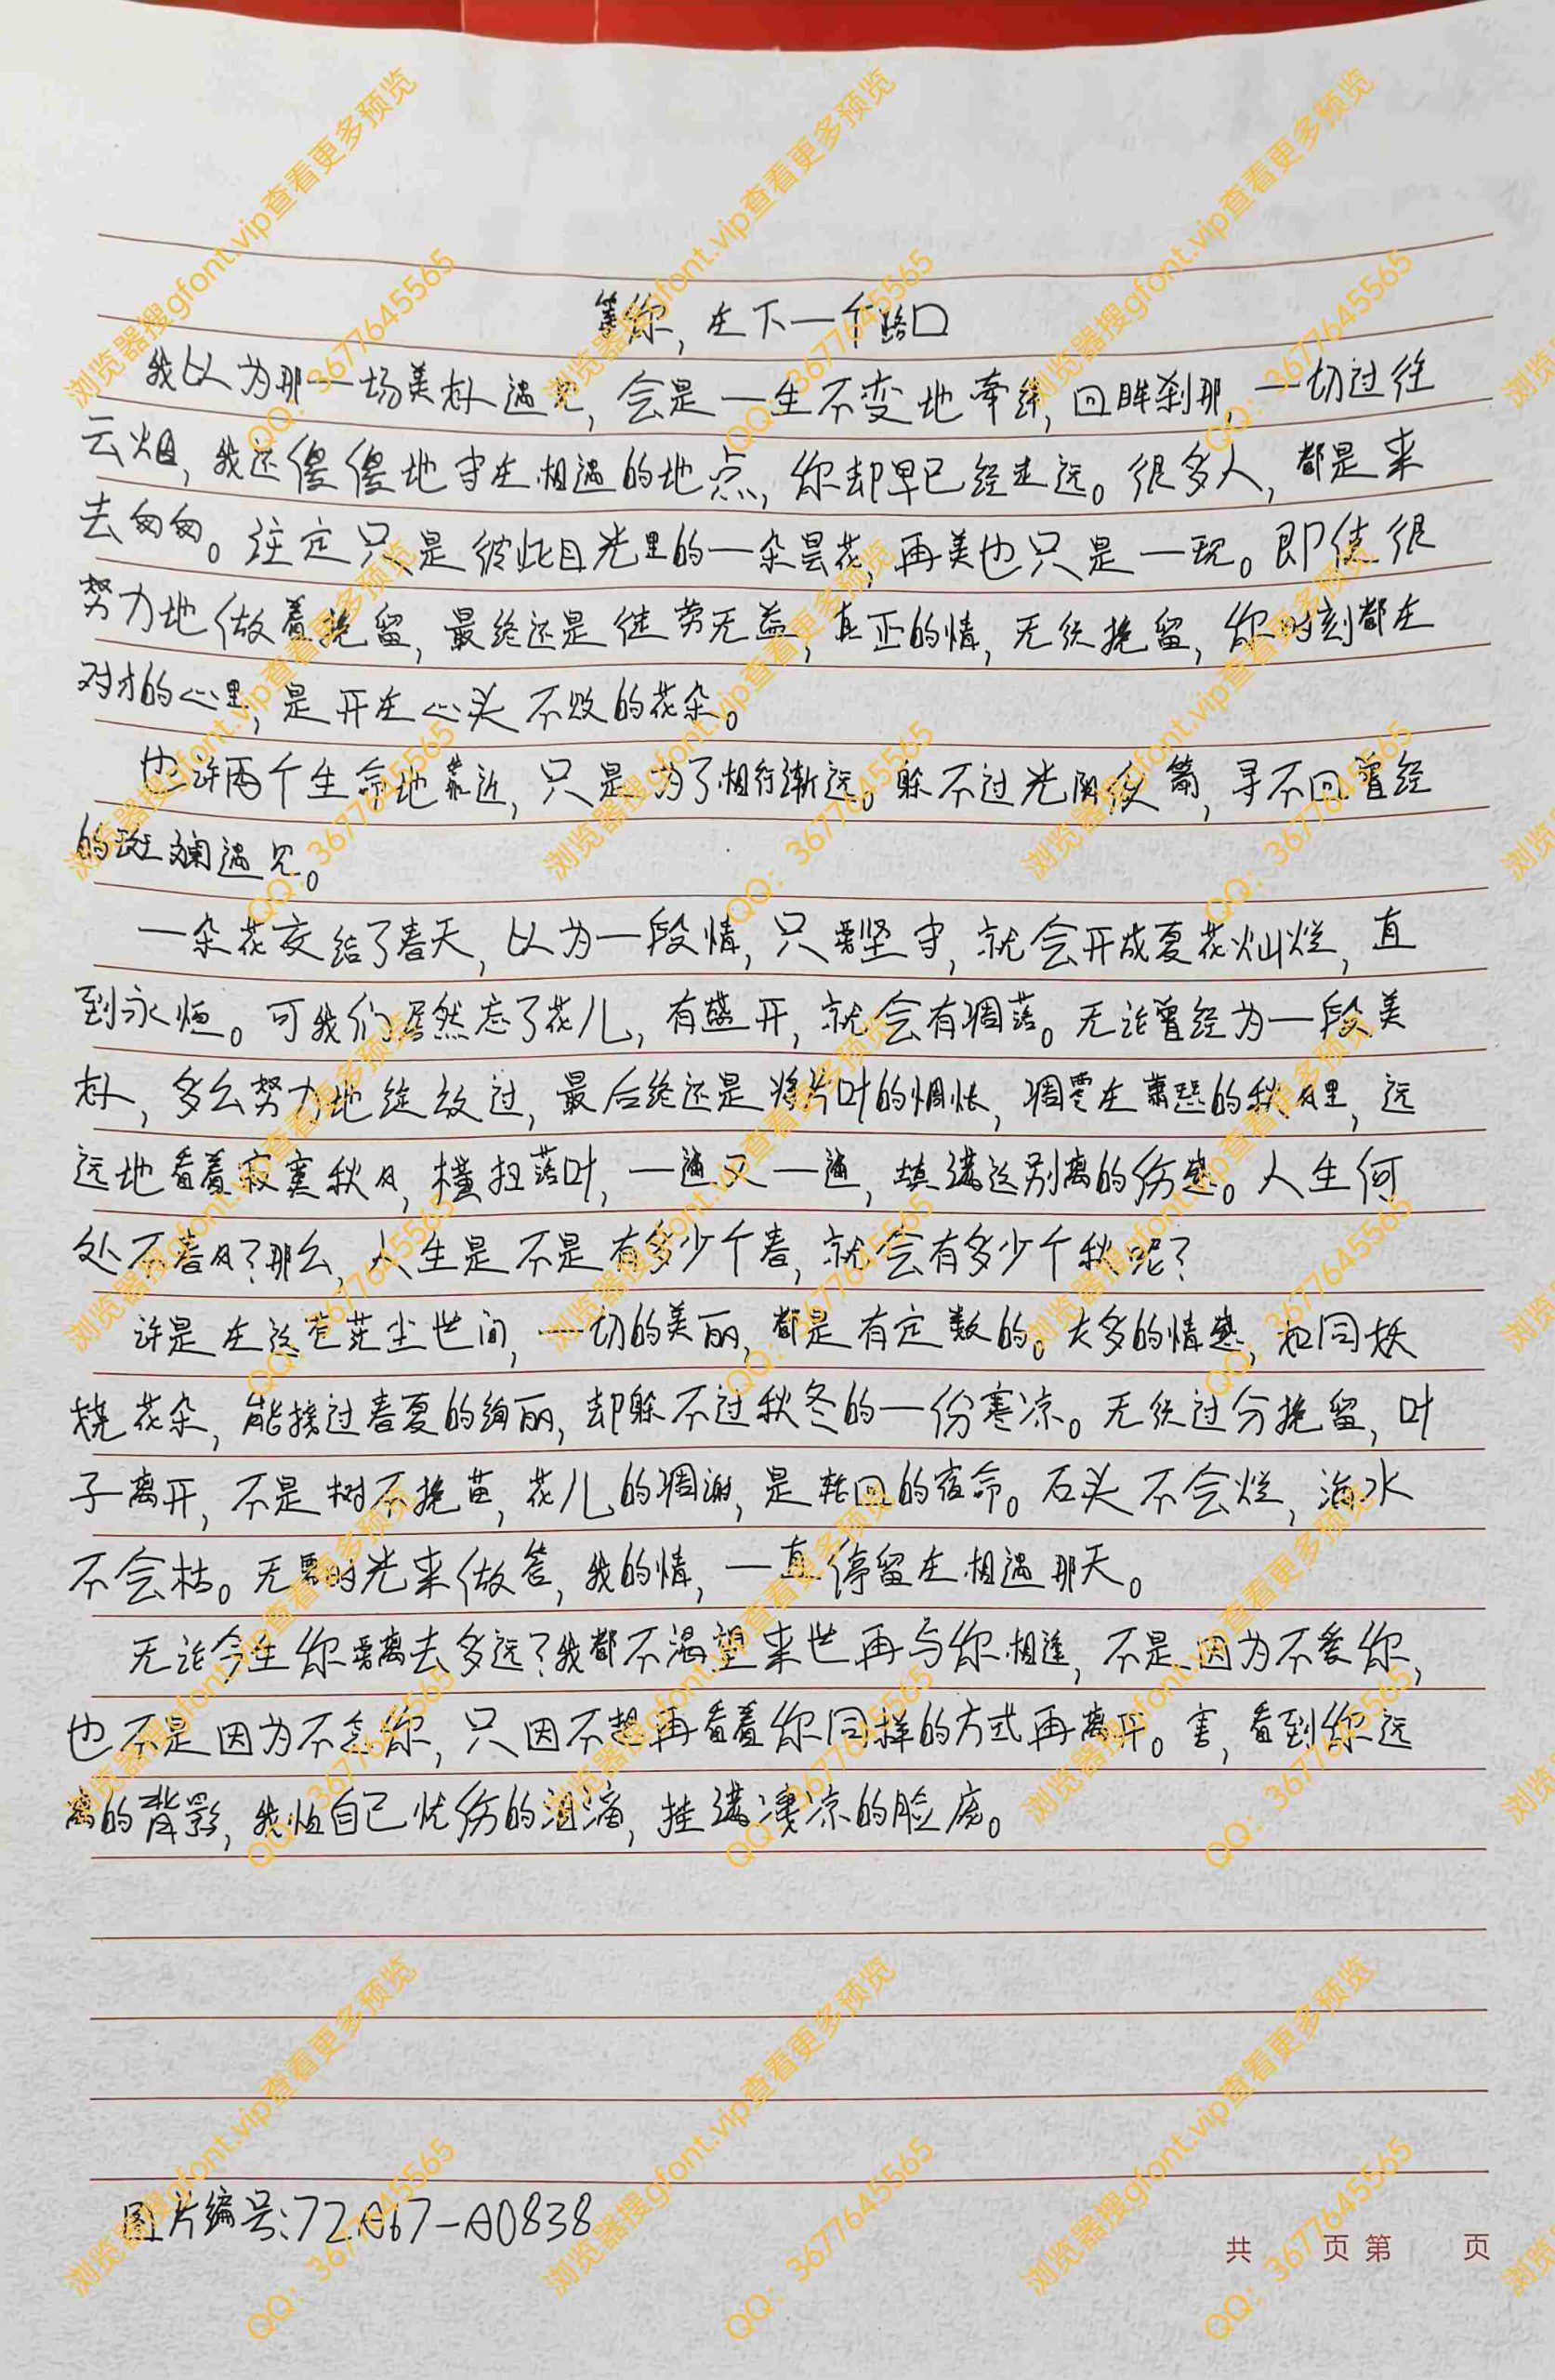 等你，在下一个路口
我以为那一场美林遇见，会是一生不变地牵绊，回眸刹那，一切过往
云烟，我还傻傻地守在相遇的地点，你却早已经走远。很多人，都是来
去匆匆。注定只是彼此目光里的一朵昙花，再美也只是一现。即使很
努力地做着挽留，最终还是徒劳无益，真正的情，无须挽留，你时刻都在
对才的心里，是开在心头不败的花朵。
也许两个生命地靠近，只是为了相行渐远。躲不过光阴似箭，寻不回曾经
的斑斓遇见。
一朵花交给了春天，以为一段情，只要坚守，就会开成夏花灿烂，直
到永恒。可我们居然忘了花儿，有盛开，就会有凋落。无论曾经为一段美
林，多么努力地绽放过，最后终还是将片叶的惆怅，凋零在萧瑟的秋风里，远
远地看着寂寞秋风，横扫落叶，一遍又一遍，填满这别离的伤感。人生何
处不春风？那么，人生是不是有多少个春，就会有多少个秋呢？
许是在这苍茫尘世间，一切的美丽，都是有定数的。太多的情感，如同妖
娆花朵，能接过春夏的绚丽，却躲不过秋冬的一份寒凉。无须过分挽留，叶
子离开，不是树不挽留，花儿的凋谢，是轮回的宿命。石头不会烂，海水
不会枯。无需时光来做答，我的情，一直停留在相遇那天。
无论今生你要离去多远？我都不渴望来世再与你相逢，不是因为不爱你，
也不是因为不念你，只因不想再看着你同样的方式再离开。害，看到你远
离的背影，我怕自己忧伤的泪滴，挂满凄凉的脸庞。
图片编号：72A67-A0838
共 页 第 页
浏览器搜gfont.vip查看更多预览
QQ：3677645565